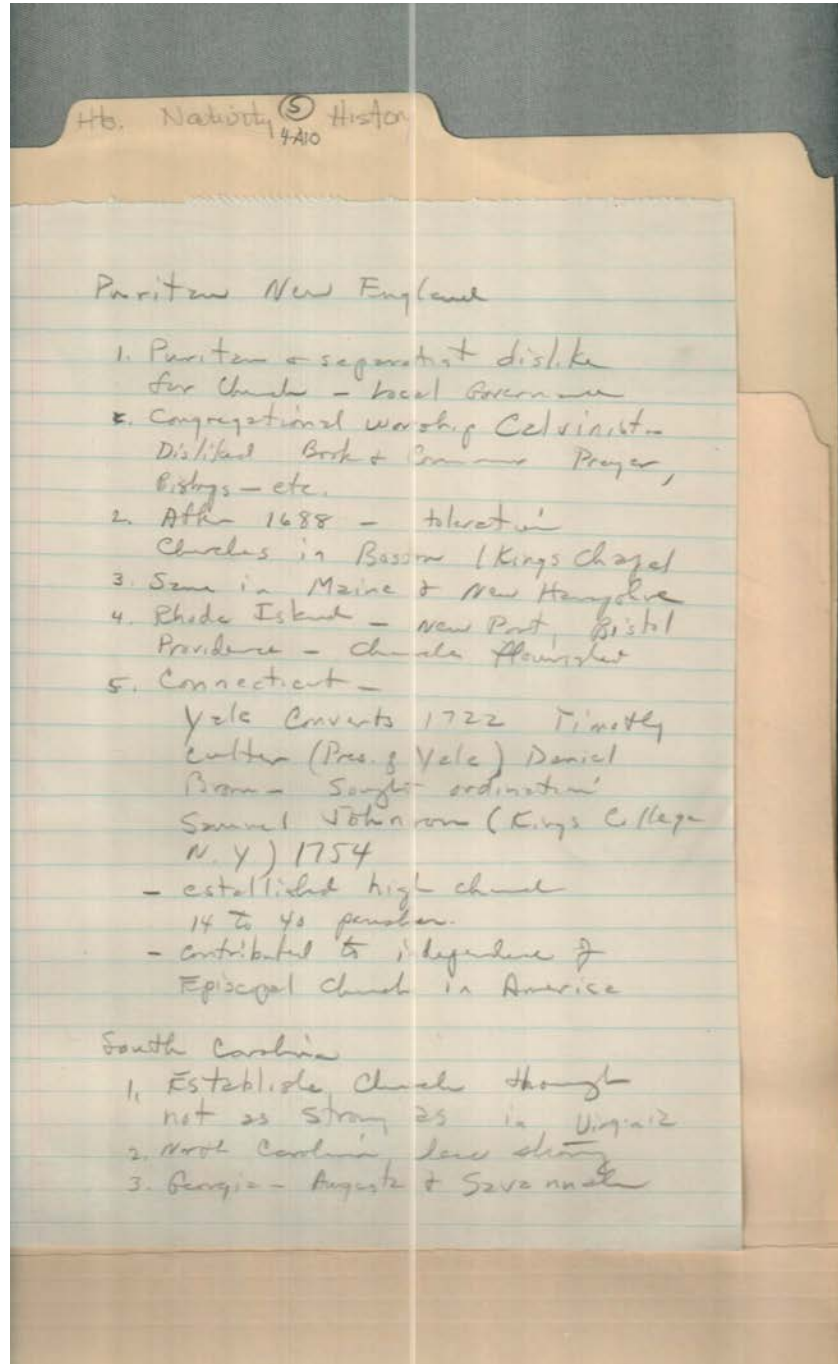 Hb. Nativity (5) History
4A10
Puritan New England
1. Puritan & separatist dislike
for Church - Local Governance
2. Congregational worship Calvinist -
Disliked Book of Common Prayer,
Bishops - etc.
2. After 1688 - toleration
Churches in Boston (Kings Chapel
3. Same in Maine & New Hampshire
4. Rhode Island - New Port, Bristol
Providence - Churches flourished
5. Connecticut -
Yale Converts 1722 Timothy
Cutler (Pres. of Yale) Daniel
Brown - Sought ordination
Samuel Johnson (Kings College
N.Y) 1754
- established high church
14 to 40 parishes.
- contributed to independence of
Episcopal Church in America
South Carolina
1. Establish Church though
not as strong as in Virginia
2. North Carolina less strong
3. Georgia - Augusta & Savannah